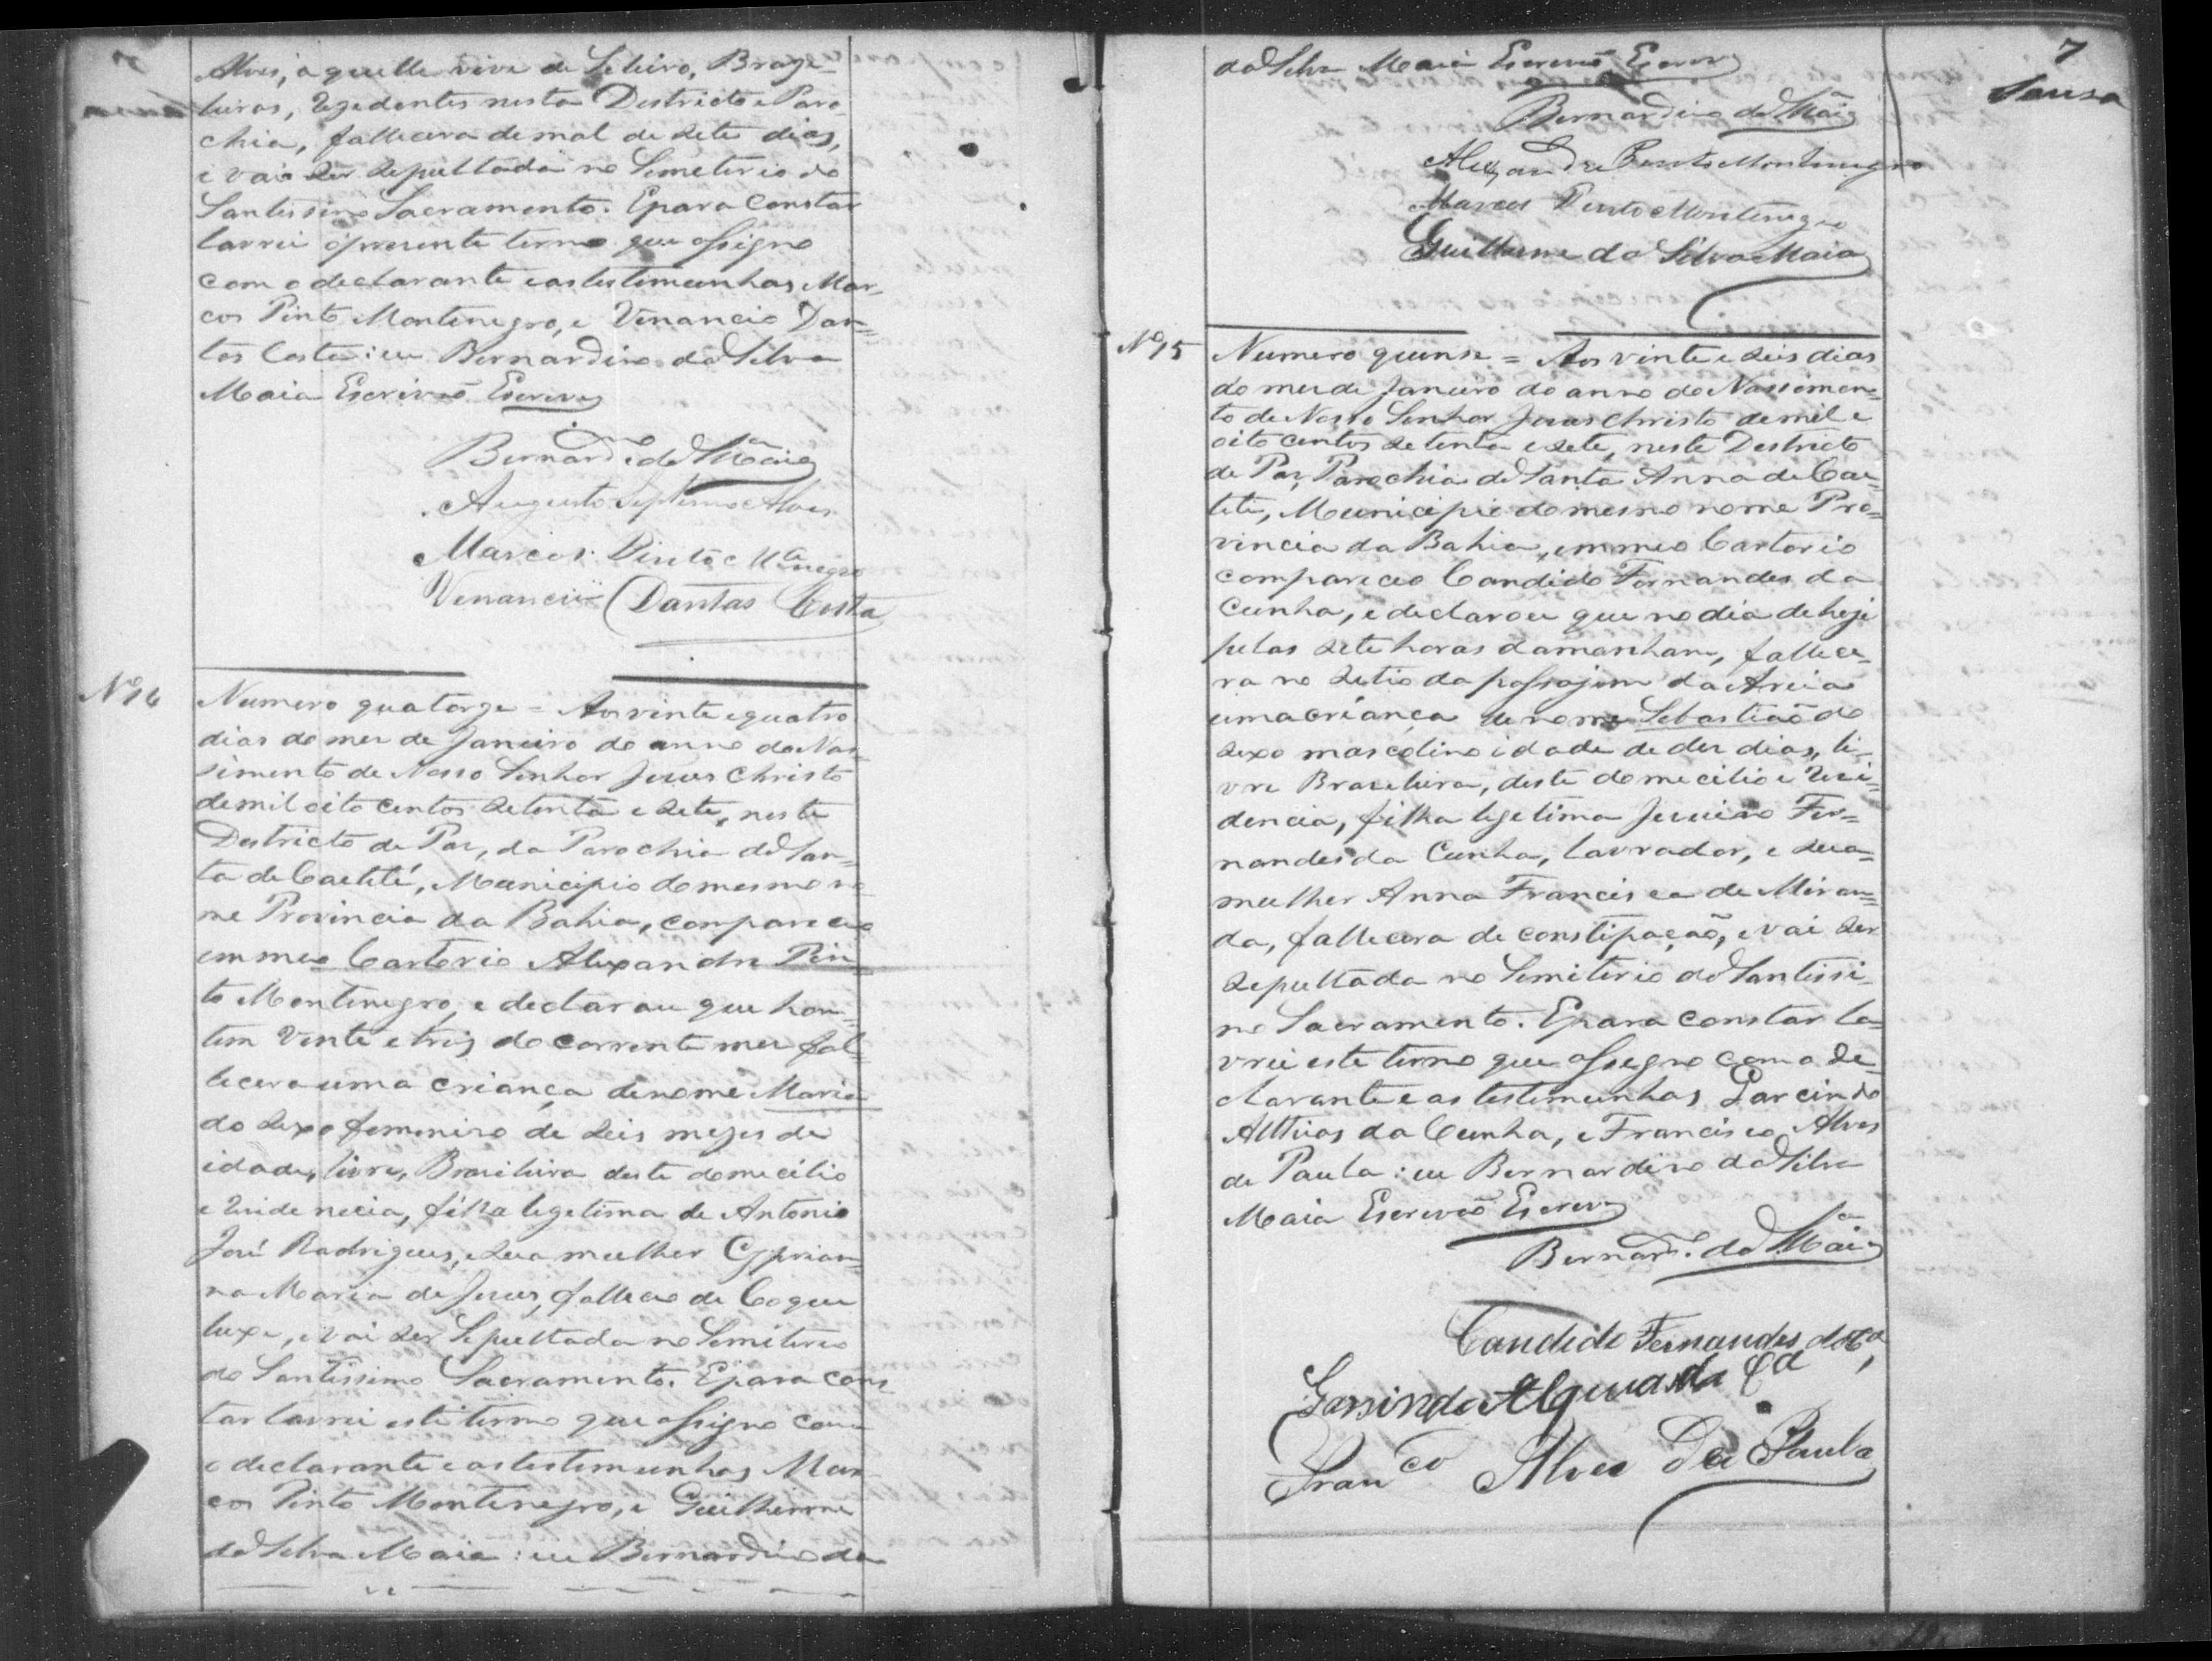 Alves, aquelle vive de Seleiro, Braze-
leiros, Rezedentes nesta Destricto e Paro-
chia, fallecera de mal de Sete dias,
e vai Ser Sepultada no Semeterio do
Santissimo Sacramento. E para Constar
lavrei o presente termo que assigno
com o declarante e as testimunhas Mar-
cos Pinto Montenegro, e Venancio Dan-
tas Costa: eu Bernardino da Silva
Maia Escrivaõ Escrevy
Bernard.º da S.ª Maia
Augusto Septimo Alves
Marcos Pinto Mtenegro
Venancio Dantas Costa
Nº 14
Numero quatorze = Aos vinte e quatro
dias do mes de Janeiro do anno do Nas-
simento de Nosso Senhor Jesus Christo
de mil oito centos Setenta e Sete, neste
Destricto de Paz, da Parochia de San-
ta de Caetité, Municipio do mesmo no-
me Provincia da Bahia, compareceo
em meo Cartorio Alexandre Pin-
to Montenegro, e declarou que hon-
tem Vente e tres do corrente mes fal-
lecera uma criança de nome Maria
do Sexo femenino de Seis mezes de
idade, livre, Brasileira deste domecilio
e Rezidencia, filha legetima de Antonio
José Rodrigues, e Sua mulher Cyprian-
na Maria de Jesus, falleceo de Coque
luxe, e vai Ser Sepultada no Semiterio
do Santissimo Sacramento. E para cons
tar lavrei este termo que assigno com
o declarante e as testemunhas Mar-
cos Pinto Montenegro, e Guilherme
da Silva Maia: eu Bernardino da
7
Sousa
da Silva Maia Escrivaõ Escrevy
Bernardino da S.ª Maia
Alexandre Pinto Montenegro
Marcos Pinto Montenegro
Guilherme da Silva Maia
Nº 15
Numero quinse = Aos vinte e Seis dias
do mes de Janeiro do anno do Nassemen-
to de Nosso Senhor Jesus Christo de mil e
oito centos Setenta e Sete, neste Destricto
de Paz, Parochia de Santa Anna de Cae-
teté, Municipio do mesmo nome Pro-
vincia da Bahia, em meo Cartorio
compareceo Candido Fernandes da
Cunha, e declarou que no dia de hoje
pelas Sete horas da manham, fallece-
ra no Setio da passajem da Areia
uma criança de nome Sebastiaõ do
Sexo mascolino idade de des dias, li-
vre Braseleira, deste domecilio e Resi-
dencia, filha legetima Jesuino Fer-
nandes da Cunha, lavrador, e Sua
mulher Anna Francisca de Miran-
da, fallecera de constipaçaõ, e vai Ser
Sepultada no Semiterio do Santissi-
mo Sacramento. E para constar la-
vrei este termo que assegno com o de-
clarante e as testemunhas Garcindo
Atthias da Cunha, e Francisco Alves
de Paula: eu Bernardino da Silva
Maia Escrevaõ Escrevy
Bernard.º da S.ª Maia
Candido Fernandes da C.ª
Garsindo da C.ª
Fran.co Alves De Paula